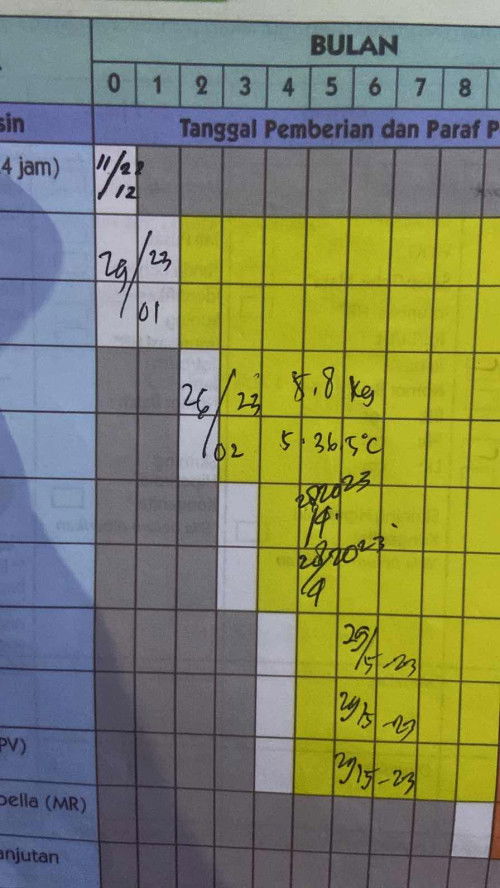 BULAN
0 1 2 3 4 5 6 7 8
sin Tanggal Pemberian dan Paraf P
4 jam)
11/22
/12
29/23
/01
26/23 5.8 kg
/02 S. 36.5°C
28/2023
/4.
28/2023.
/4
29/
/5-23
29/5-23
PV) 29/5-23
bella (MR)
anjutan